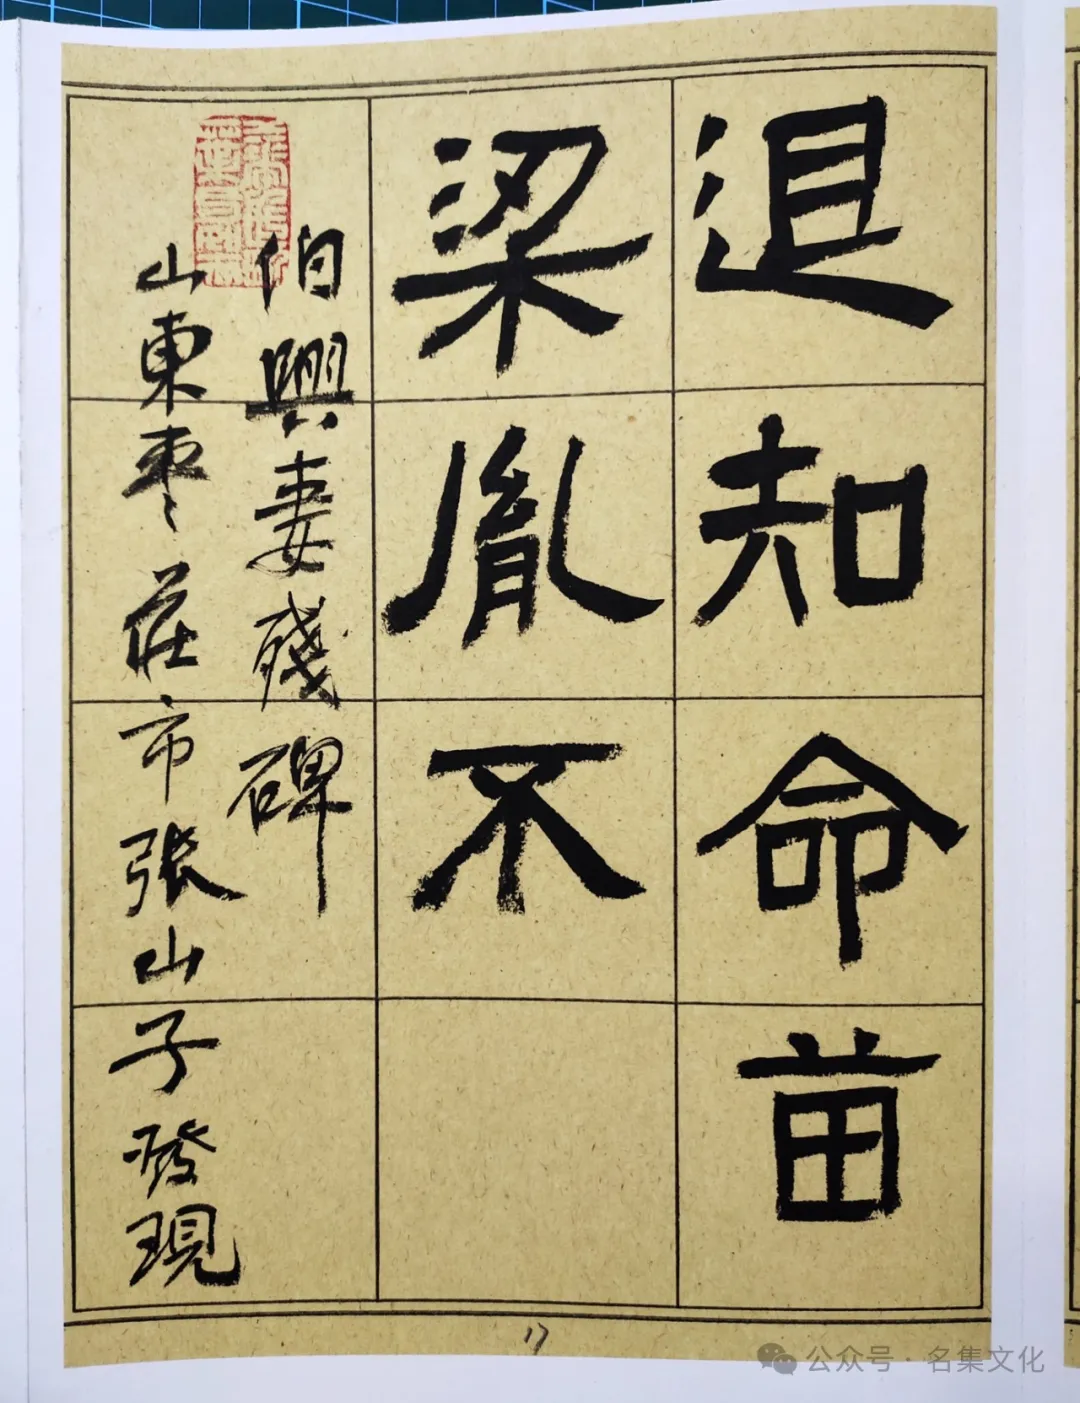 退知命苗
梁胤不
伯興妻殘碑
山東枣莊市張山子發現
17
公众号·名集文化